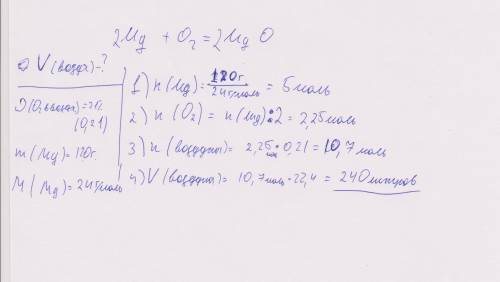 2Mg + O₂ = 2MgO
V(воздуха)-?
(O₂ в воздухе)=21%
(0,21)
m(Mg)=120г.
M(Mg)=24г/моль
1) n(Mg)= 120г / 24г/моль = 5 моль
2) n(O₂) = n(Mg):2 = 2,25 моль
3) n(воздуха)= 2,25 : 0,21 = 10,7 моль
4) V(воздуха)= 10,7 моль · 22,4 = 240 литров